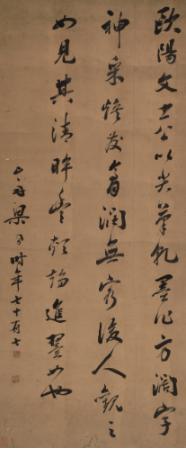 歐陽文忠公以尖筆乾墨作方濶字
神采煥發膏潤無窮後人觀之
如見其清眸豐頰趨進翼如也
山舟梁同書時年七十有七